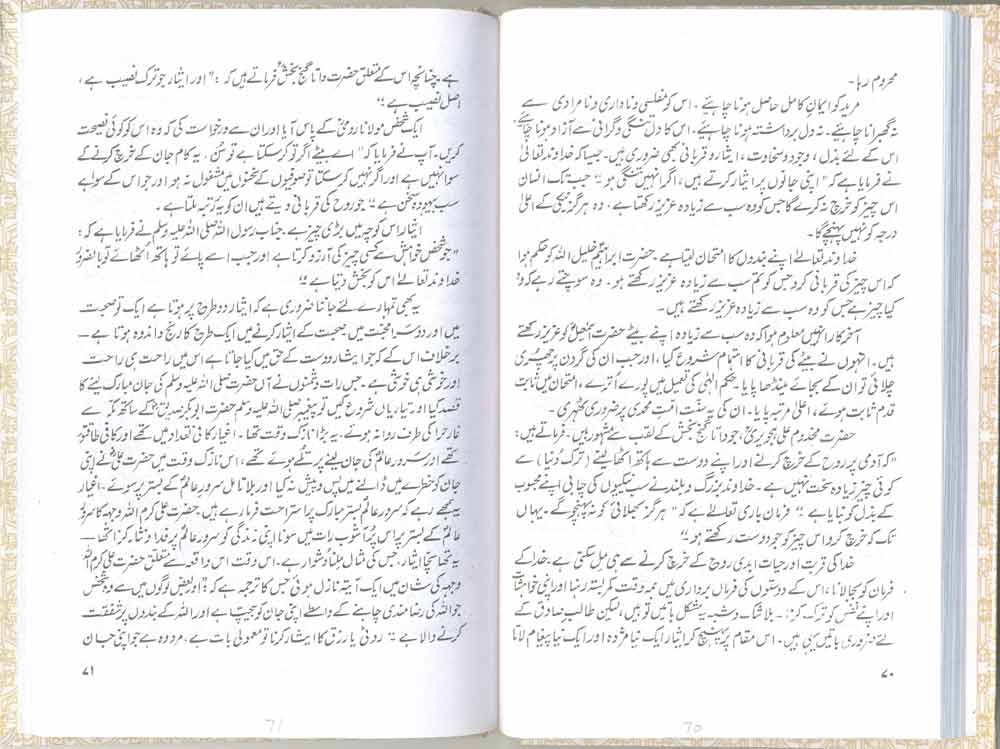 محروم رہا۔
مرید کو ایمانِ کامل حاصل ہونا چاہئیے۔ اس کو مفلسی و ناداری و نا مرادی سے
نہ گھبرانا چاہئیے۔ نہ دل برداشتہ ہونا چاہئیے۔ اس کا دل تنگی و گرانی سے آزاد ہونا چاہئیے۔
اس کے لئے بذل، وجود و سخاوت، ایثار و قربانی بھی ضروری ہیں۔ جیسا کہ خداوند تعالیٰ
نے فرمایا ہے کہ "اپنی جانوں پر ایثار کرتے ہیں، اگر انہیں تنگی ہو" جب تک انسان
اس چیز کو خرچ نہ کرے گا جس کو وہ سب سے زیادہ عزیز رکھتا ہے۔ وہ ہرگز نیکی کے اعلیٰ
درجہ کو نہیں پہنچے گا۔
خداوند تعالےٰ اپنے بندوں کا امتحان لیتا ہے۔ حضرت ابراہیم خلیل اللہ کو حکم ہوا
کہ اس چیز کی قربانی کرو جس کو تم سب سے زیادہ عزیز رکھتے ہو۔ وہ سوچتے رہے کہ وہ
کیا چیز ہے جس کو وہ سب سے زیادہ عزیز رکھتے ہیں۔
آخر کار انہیں معلوم ہوا کہ وہ سب سے زیادہ اپنے بیٹے حضرت اسمٰعیل کو عزیز رکھتے
ہیں۔ انہوں نے بیٹے کی قربانی کا اہتمام شروع کیا، اور جب ان کی گردن پر چھری
چلائی تو ان کے بجائے مینڈھا پایا۔ یہ حکم الہٰی کی تعمیل میں پورے اترے، امتحان میں ثابت
قدم ثابت ہوئے، اعلیٰ مرتبہ پایا۔ ان کی یہ سنّت امّتِ محمدی پر ضروری ٹھہری۔
حضرت مخدوم علی ہجویریؒ، جو داتا گنج بخش کے لقب سے مشہور ہیں۔ فرماتے ہیں:
"کہ آدمی پر روح کے خرچ کرنے اور اپنے دوست سے ہاتھ اٹھا لینے (ترک دُنیا) سے
کوئی چیز زیادہ سخت نہیں ہے۔ خداوند بزرگ و بلند نے سب نیکیوں کی چابی اپنے محبوب
کے بذل کو بنایا ہے" فرمان باری تعالےٰ ہے کہ "ہرگز بھلائی کو نہ پہنچو گے۔ یہاں
تک کہ خرچ کرو اس چیز کو جو دوست رکھتے ہو"
خدا کی قربت اور حیات ابدی روح کے خرچ کرنے سے ہی مل سکتی ہے۔ خدا کے
فرمان کو بجا لانا، اس کے دوستوں کی فرماں برداری میں ہمہ وقت کمر بستہ رہنا اور اپنی خواہشات
اور اپنے نفس کو ترک کرنا۔ بلا شک و شبہ یہ مشکل باتیں تو ہیں، لیکن طالبِ صادق کے
لئے ضروری باتیں یہی ہیں۔ اس مقام پر پہنچ کر ایثار ایک نیا مژدہ اور ایک نیا پیغام لاتا
۷۰
70
ہے۔ چنانچہ اس کے متعلق حضرت داتا گنج بخشؒ فرماتے ہیں کہ: "اور ایثار جو ترک نصیب ہے،
اصل نصیب ہے"
ایک شخص مولانا رومیؒ کے پاس آیا اور ان سے درخواست کی کہ وہ اس کو کوئی نصیحت
کریں۔ آپ نے فرمایا کہ "اے بیٹے اگر تو کر سکتا ہے تو سُن۔ یہ کام جان کے خرچ کرنے کے
سوا نہیں ہے اور اگر نہیں کر سکتا تو صوفیوں کے سخنوں میں مشغول نہ ہو اور جو اس کے سوا ہے
سب بیہودہ سخن ہے" جو روح کی قربانی دیتے ہیں ان کو یہ رُتبہ ملتا ہے۔
ایثار اس کوچہ میں بڑی چیز ہے۔ جناب رسول اللہ صلی اللہ علیہ وسلم نے فرمایا ہے کہ:
"جو شخص خواہش سے کسی چیز کی آرزو کرتا ہے اور جب اسے پائے تو ہاتھ اُٹھائے تو بالضرور
خداوند تعالےٰ اس کو بخش دیتا ہے"
یہ بھی تمہارے لئے جاننا ضروری ہے کہ ایثار دو طرح پر ہوتا ہے ایک تو صحبت
میں اور دوسرا محبت میں صحبت کے ایثار کرنے میں ایک طرح کا رنج و اندوہ ہوتا ہے۔
برخلاف اس کے کہ جو ایثار دوست کے حق میں کیا جاتا ہے اس میں راحت ہی راحت
اور خوشی ہی خوشی ہے۔ جس رات دشمنوں نے آں حضرت صلی اللہ علیہ وسلم کی جان مبارک لینے کا
قصد کیا اور تیاریاں شروع کیں تو پیغمبر صلی اللہ علیہ وسلم حضرت ابوبکر صدیقؓ کے ساتھ مکہ سے
غار حرا کی طرف روانہ ہوئے۔ یہ بڑا نازک وقت تھا۔ اغیار کافی تعداد میں تھے اور کافی طاقتور
تھے اور سرورِ عالمؐ کی جان لینے پر تلے ہوئے تھے، اس نازک وقت میں حضرت علیؓ نے اپنی
جان کو خطرے میں ڈالنے میں پس و پیش نہ کیا اور بلا تامل سرورِ عالمؐ کے بستر پر سوئے۔ اغیار
سمجھے رہے کہ سرورِ عالم بستر مبارک پر استراحت فرما رہے ہیں۔ حضرت علی کرم اللہ وجہہ کا سرورِ
عالمؐ کے بستر پر اس پُر آشوب رات میں سونا اپنی زندگی کو سرورِ عالمؐ پر فدا و نثار کرنا تھا۔
یہ تھا سچا ایثار، جس کی مثال ملنا دشوار ہے۔ اس وقت اس واقعہ سے متعلق حضرت علی کرم اللہ
وجہہ کی شان میں ایک آیت نازل ہوئی جس کا ترجمہ ہے کہ: "اور بعض لوگوں میں سے وہ شخص
جو اللہ کی رضا مندی چاہنے کے واسطے اپنی جان کو بیچتا ہے اور اللہ کے بندوں پر شفقت
کرنے والا ہے" روٹی یا رزق کا ایثار کرنا تو معمولی بات ہے، مرد وہ ہے جو اپنی جان
۷۱
71